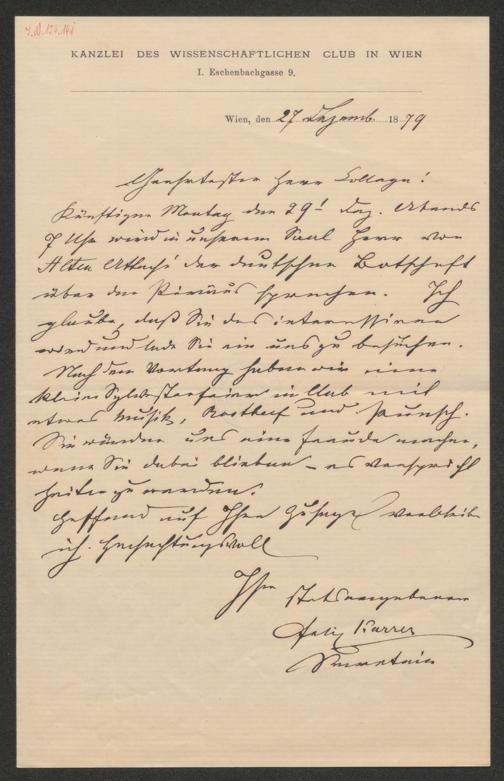 J.N. 124.141
KANZLEI DES WISSENSCHAFTLICHEN CLUB IN WIEN
I. Eschenbachgasse 9.
Wien, den 27 Dezemb. 1879
Geehrtester Herr College!
Künftigen Montag den 29t Dez. Abends
7 Uhr wird in unserem Saal Herr von
Alten Attaché der deutschen Botschaft
über den Piräus sprechen. Ich
glaube, daß Sie das interessiren
wird und lade Sie ein uns zu besuchen.
Nach dem Vortrag haben wir eine
kleine Sylvesterfeier im Club mit
etwas Musik, Rostbeef und Punsch.
Sie würden uns eine Freude machen,
wenn Sie dabei blieben – es verspricht
heiter zu werden.
Hoffend auf Ihre Zusage verbleibe
ich Hochachtungsvoll
Ihr stets ergebener
Felix Karrer
Secretair